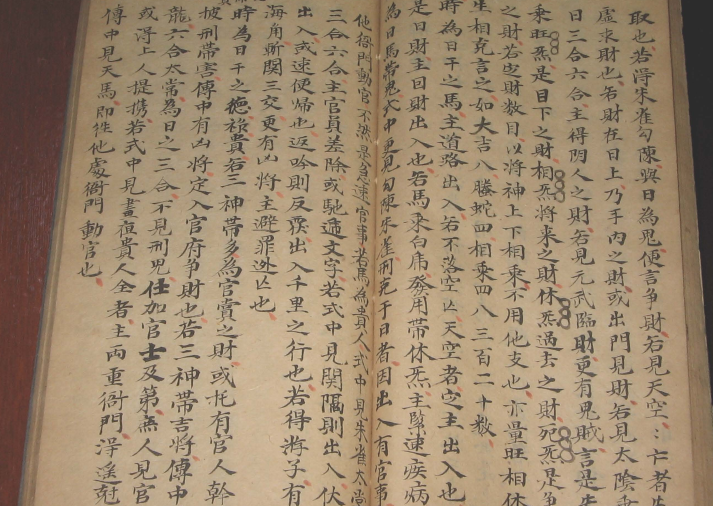 取也若得朱雀勾陳與日為鬼便言争財若見天空
虛求財也若財在日上乃手内之財或出門見財若見太陰
日三合六合主得阴人之財若見元武臨財更有鬼賊言是失
乘旺炁是目下之財相炁將来之財休炁過去之財死炁是争
之財若定財数目以將神上下相乘不用他支也亦量旺相休
生相克言之如大吉八螣蛇四相乘四八三百二十数
時為日干之馬主道路出入若不落空亡天空者定主出入也
是日財主回財出入也若馬乘白虎發用帶休炁主緊速疾病
為日馬帶鬼式中更見勾陳朱雀刑克于日者因出入有官事
他衙門動官不然是急速官事若馬為貴人式中見朱雀太常
三合六合主官員差除或馳遞文字若式中見関隔則出入伏
出入或速便帰也返吟則反覆出入千里之行也若得游子有
海角斬関三交更有凶將主避罪逃亡也
時為日干之德祿貴若三神帶多為官賞之財或托有官人幹
披刑带害傳中有凶將定入官府争財也若三神帶吉將傳中
龍六合太常為日之三合不見刑児仕加官士及第庶人見官
或得上人提携若式中見晝夜貴人全者主両重衙門淂遥尅
傳中見天馬即性他處衙門動官也